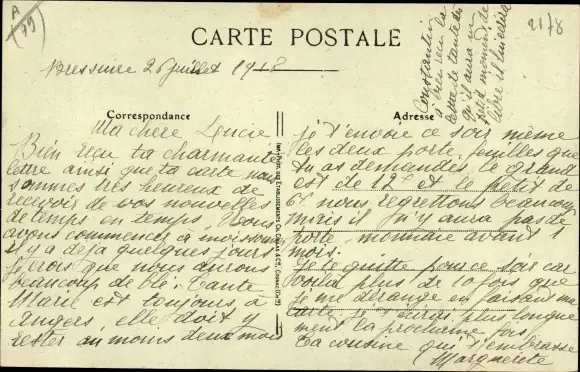 A
(79)
2178
CARTE POSTALE
Bressuire 26 Juillet 1912
Constantin
a bien reçu la
lettre de tante dès
qu'il aura un
petit moment de
libre il lui écrira
Correspondance
Ma chère Lucie
Bien reçu ta charmante
lettre ainsi que ta carte nous
sommes très heureux de
recevoir de vos nouvelles
de temps en temps. Nous
avons commencer à moissonner
il y a déja quelques jours
je crois que nous aurons
beaucoup de blé. Tante
Marie est toujours à
Angers, elle doit y
rester au moins deux mois
Adresse
je t'envoie ce soir même
les deux porte-feuilles que
tu as demandés le grand
est de 12 et le petit de
6f. nous regrettons beaucoup
mais il n'y aura pas de
porte-monnaie avant 1
mois.
Je te quitte pour ce soir car
voila plus de 10 fois que
je me dérange en faisant ma
carte je t'écrirai plus longue
ment la prochaine fois
Ta cousine qui t'embrasse
Marguerite